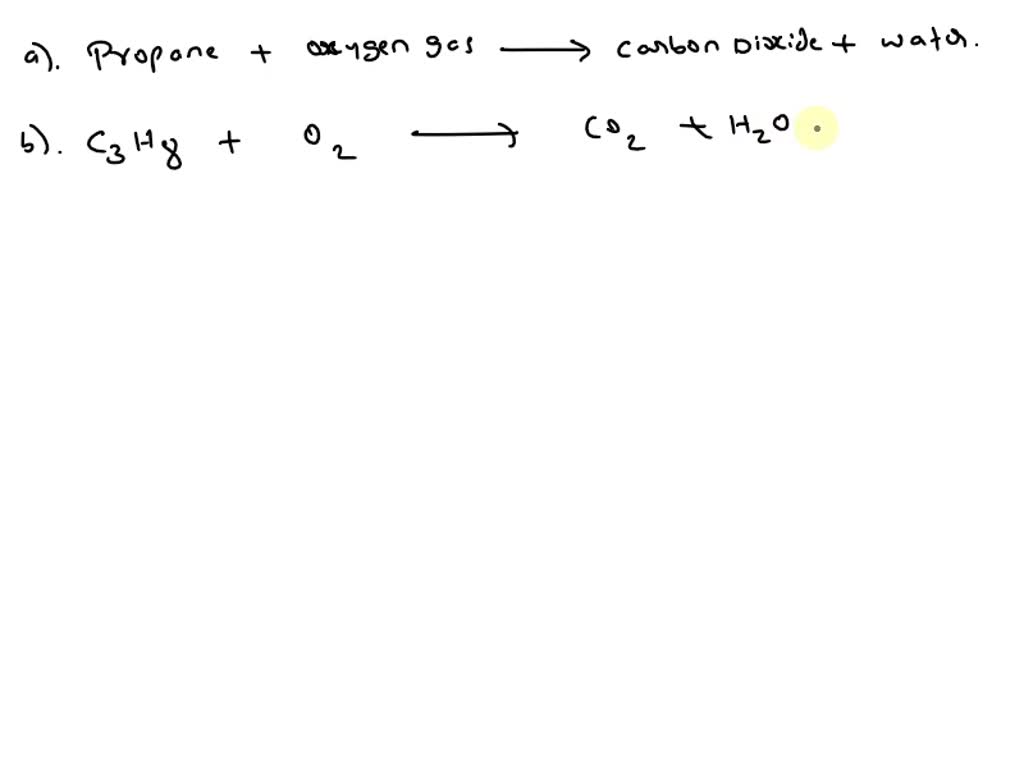 a). Propane + oxygen gas ⟶ Carbon Dioxide + water.
b). C₃H₈ + O₂ ⟶ CO₂ + H₂O